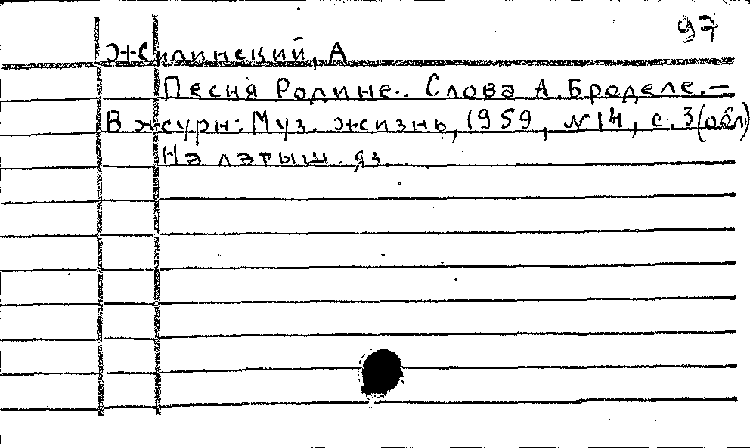 97
Жилинский, А
Песня Родине. Слова А. Броделе.–
В журн: Муз. жизнь, 1959, №14, с. 3(обл)
На латыш. яз.